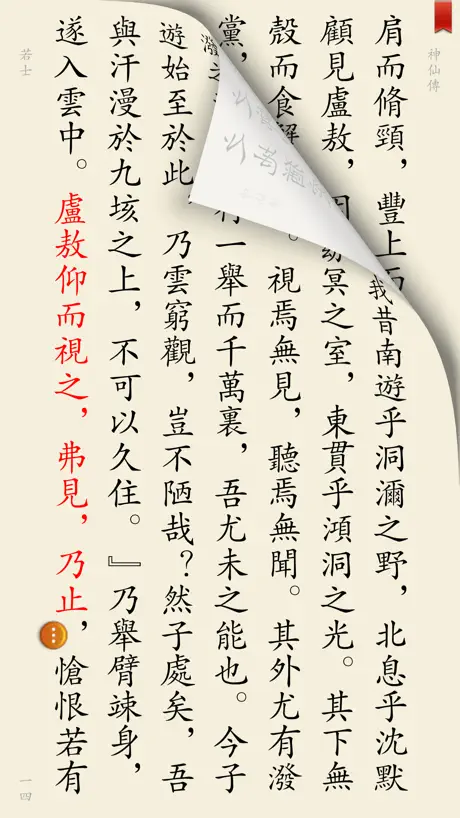 神仙傳
肩而脩頸，豐上
我昔南遊乎洞瀰之野，北息乎沈默
顧見盧敖，
冥之室，東貫乎澒洞之光。其下無
殼而食
。視焉無見，聽焉無聞。其外尤有潑
黨，
潑之
一舉而千萬裏，吾尤未之能也。今子
遊始至於此，乃雲窮觀，豈不陋哉？然子處矣，吾
與汗漫於九垓之上，不可以久住。』乃舉臂竦身，
遂入雲中。盧敖仰而視之，弗見，乃止，愴恨若有
若士
一四